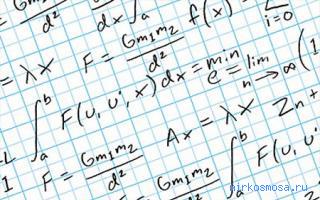 Gm₁m₂ / d²
dx ∫ₐ
f(x)
Σ i=0
= λx F = Gm₁m₂ / d²
dx = min
e = lim n→∞ (1
∫ₐᵇ F(u, u', x)
Ax = λx Zn +
1 F = Gm₁m₂ / d²
Gm₁m₂ / d²
∫ₐᵇ F(u, u'
mirkosmosa.ru